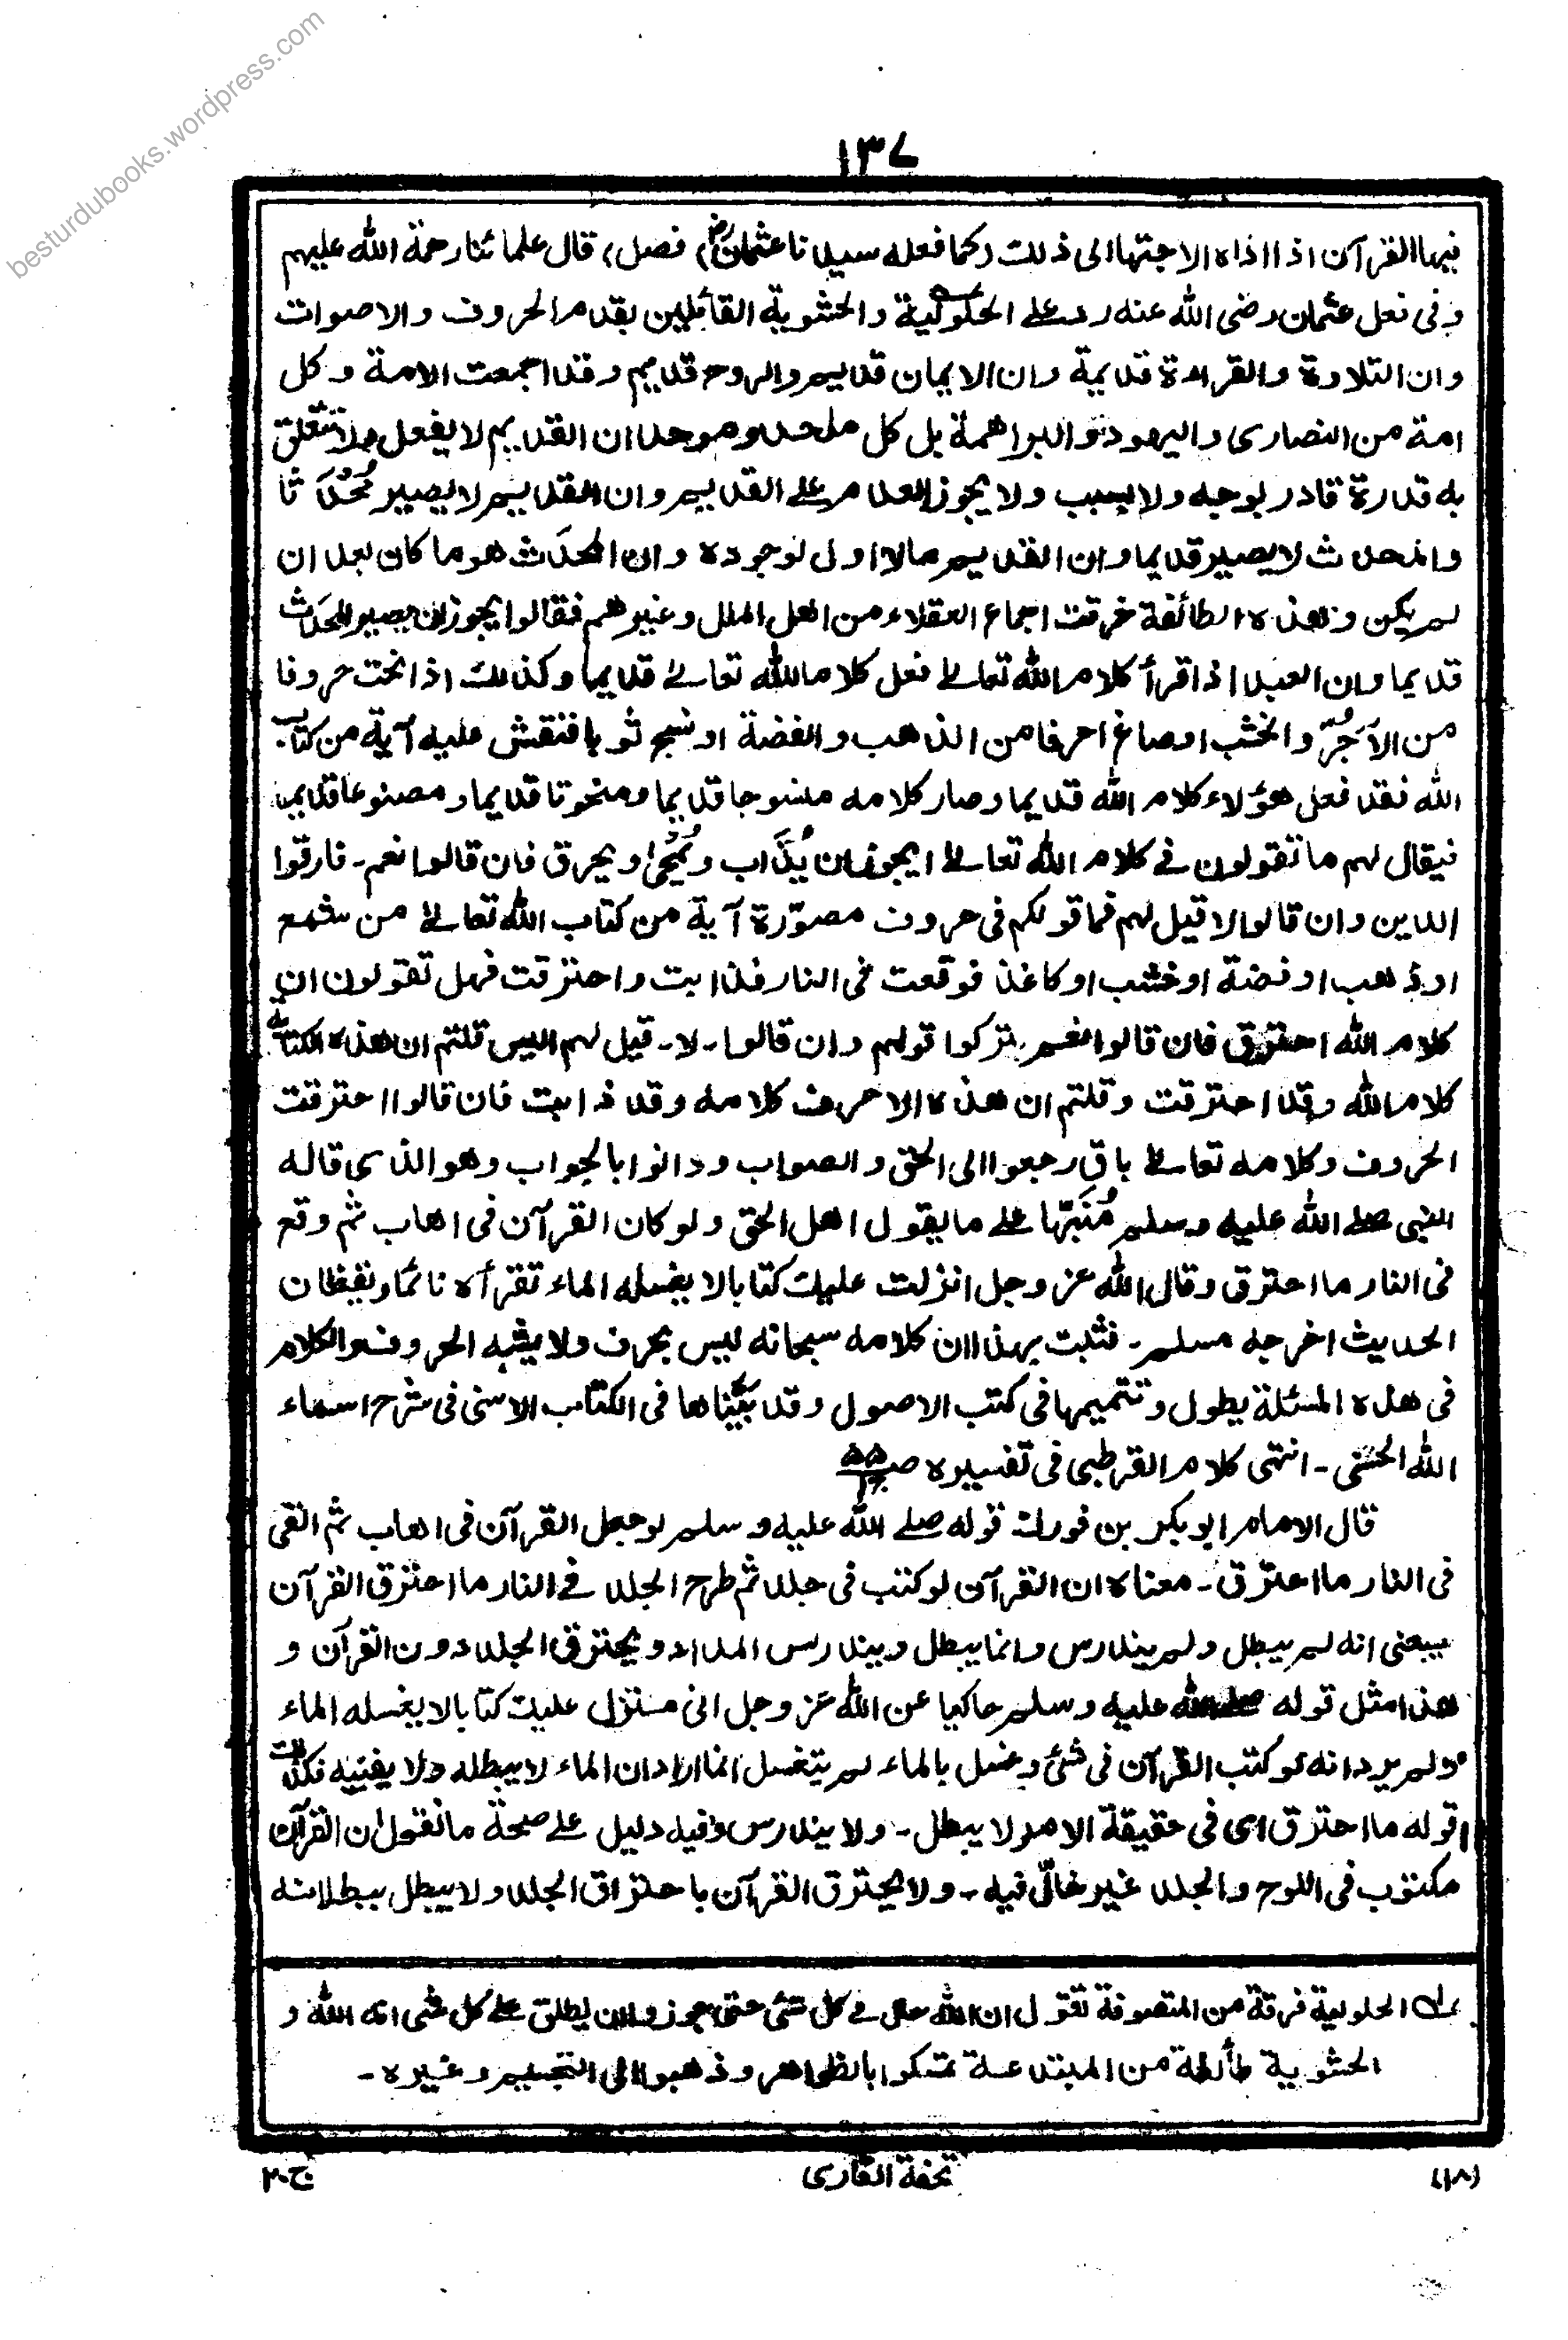 besturdubooks.wordpress.com
١٣٧
فيها القرآن اذا اداه الاجتهاد الى ذلك (كما فعله سيدنا عثمان رض) فصل، قال علمائنا رحمة الله عليهم
وفي فعل عثمان رضى الله عنه رد على الحلولية والحشوية القائلين بقدم الحروف والاصوات
وان التلاوة والقراءة قديمة وان الايمان قديم والروح قديم وقد اجمعت الامة وكل
امة من النصارى واليهود والبراهمة بل كل ملحد وموحد ان القديم لا يفعل ولا تتعلق
به قدرة قادر بوجه ولا بسبب ولا يجوز العدم على القديم وان القديم لا يصير مُحْدَثا
والمحدث لا يصير قديما وان القديم مالا اول لوجوده وان المحدَث هو ما كان بعد ان
لم يكن وهذه الطائفة خرقت اجماع العقلاء من اهل الملل وغيرهم فقالوا يجوز ان يصير المحدَث
قديما وان العبد اذا قرأ كلام الله تعالى فعل كلاما لله تعالى قديما وكذلك اذا نحت حروفا
من الآجُرّ والخشب او صاغ احرفا من الذهب والفضة او نسج ثوبا فنقش عليه آية من كتاب
الله فقد فعل هؤلاء كلام الله قديما وصار كلامه منسوجا قديما ومنحوتا قديما ومصنوعا قديما
فيقال لهم ما تقولون في كلام الله تعالى ايجوز ان يُذَاب ويُمْحٰى ويحرق فان قالوا نعم۔ فارقوا
الدين وان قالوا لا قيل لهم فما قولكم فى حروف مصوّرة آية من كتاب الله تعالى من شمع
او ذهب او فضة او خشب او كاغذ فوقعت في النار فذابت واحترقت فهل تقولون ان
كلام الله احترق فان قالوا نعم۔ تركوا قولهم وان قالوا۔ لا۔ قيل لهم اليس قلتم ان هذه الكتابة
كلام الله وقد احترقت وقلتم ان هذه الاحرف كلامه وقد ذابت فان قالوا احترقت
الحروف وكلامه تعالى باقٍ رجعوا الى الحق والصواب ودانوا بالجواب وهو الذى قاله
النبى صلى الله عليه وسلم مُنَبِّها على ما يقول اهل الحق ولو كان القرآن فى اهاب ثم وقع
فى النار ما احترق وقال الله عز وجل انزلت عليك كتابا لا يغسله الماء تقرأه نائما ويقظان
الحديث اخرجه مسلم۔ فثبت بهذا ان كلامه سبحانه ليس بحرف ولا يشبه الحروف والكلام
فى هذه المسئلة يطول وتتميمها فى كتب الاصول وقد بَيَّنَّاها فى الكتاب الاسنى فى شرح اسماء
الله الحسنى۔ انتهى كلام القرطبى فى تفسيره ص
قال الامام ابو بكر بن فورك قوله صلى الله عليه وسلم لو جعل القرآن فى اهاب ثم القى
فى النار ما احترق۔ معناه ان القرآن لو كتب فى جلد ثم طرح الجلد فى النار ما احترق القرآن
بمعنى انه لم يبطل ولم يندرس وانما يبطل ويندرس المداد ويحترق الجلد دون القرآن و
هذا مثل قوله صلى الله عليه وسلم حاكيا عن الله عز وجل انى منزل عليك كتابا لا يغسله الماء
ولم يرد انه لو كتب القرآن فى شئ وغسل بالماء لم ينغسل انما اراد ان الماء لا يبطله ولا يفنيه فكذلك
قوله ما احترق اى فى حقيقة الامر لا يبطل۔ ولا يندرس وفيه دليل على صحة ما نقول ان القرآن
مكتوب فى اللوح والجلد غير حالّ فيه۔ ولا يحترق القرآن باحتراق الجلد ولا يبطل ببطلانه
له الحلولية فرقة من المتصوفة تقول ان الله حل فى كل شئ حتى جوزوا ان يطلق على كل شئ انه الله و
الحشوية طائفة من المبتدعة تمسكوا بالظواهر وذهبوا الى التجسيم وغيره۔
(١٨)
تحفة القارى
ج۔٢